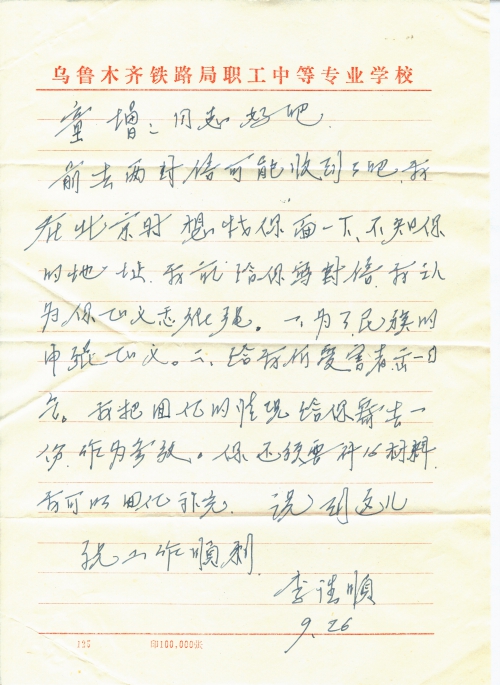 乌鲁木齐铁路局职工中等专业学校
童增：同志好吧.
前去两封信可能收到了吧,我
在北京时想找你面一下、不知你
的地址.我就给你写封信.我认
为你正义志很强。一、为了民族的
申张正义。二、给我们受害者出一口
气。我把回忆的情况给你寄去一
份.作为参考。你还须要什么材料.
我可以回忆补充. 说到这儿
祝工作順利.
李 順
9.26
125 印100,000张